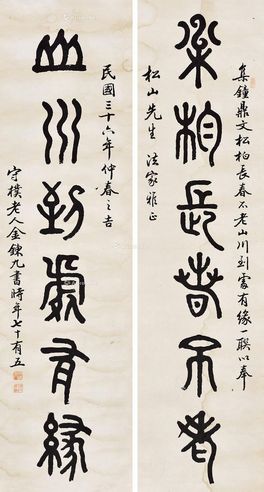 集鐘鼎文松柏長春不老山川到處有緣一聯以奉
松柏長春不老
松山先生法家雅正
民國三十六年仲春之吉
山川到處有緣
守樸老人金鍊九書時年七十有五